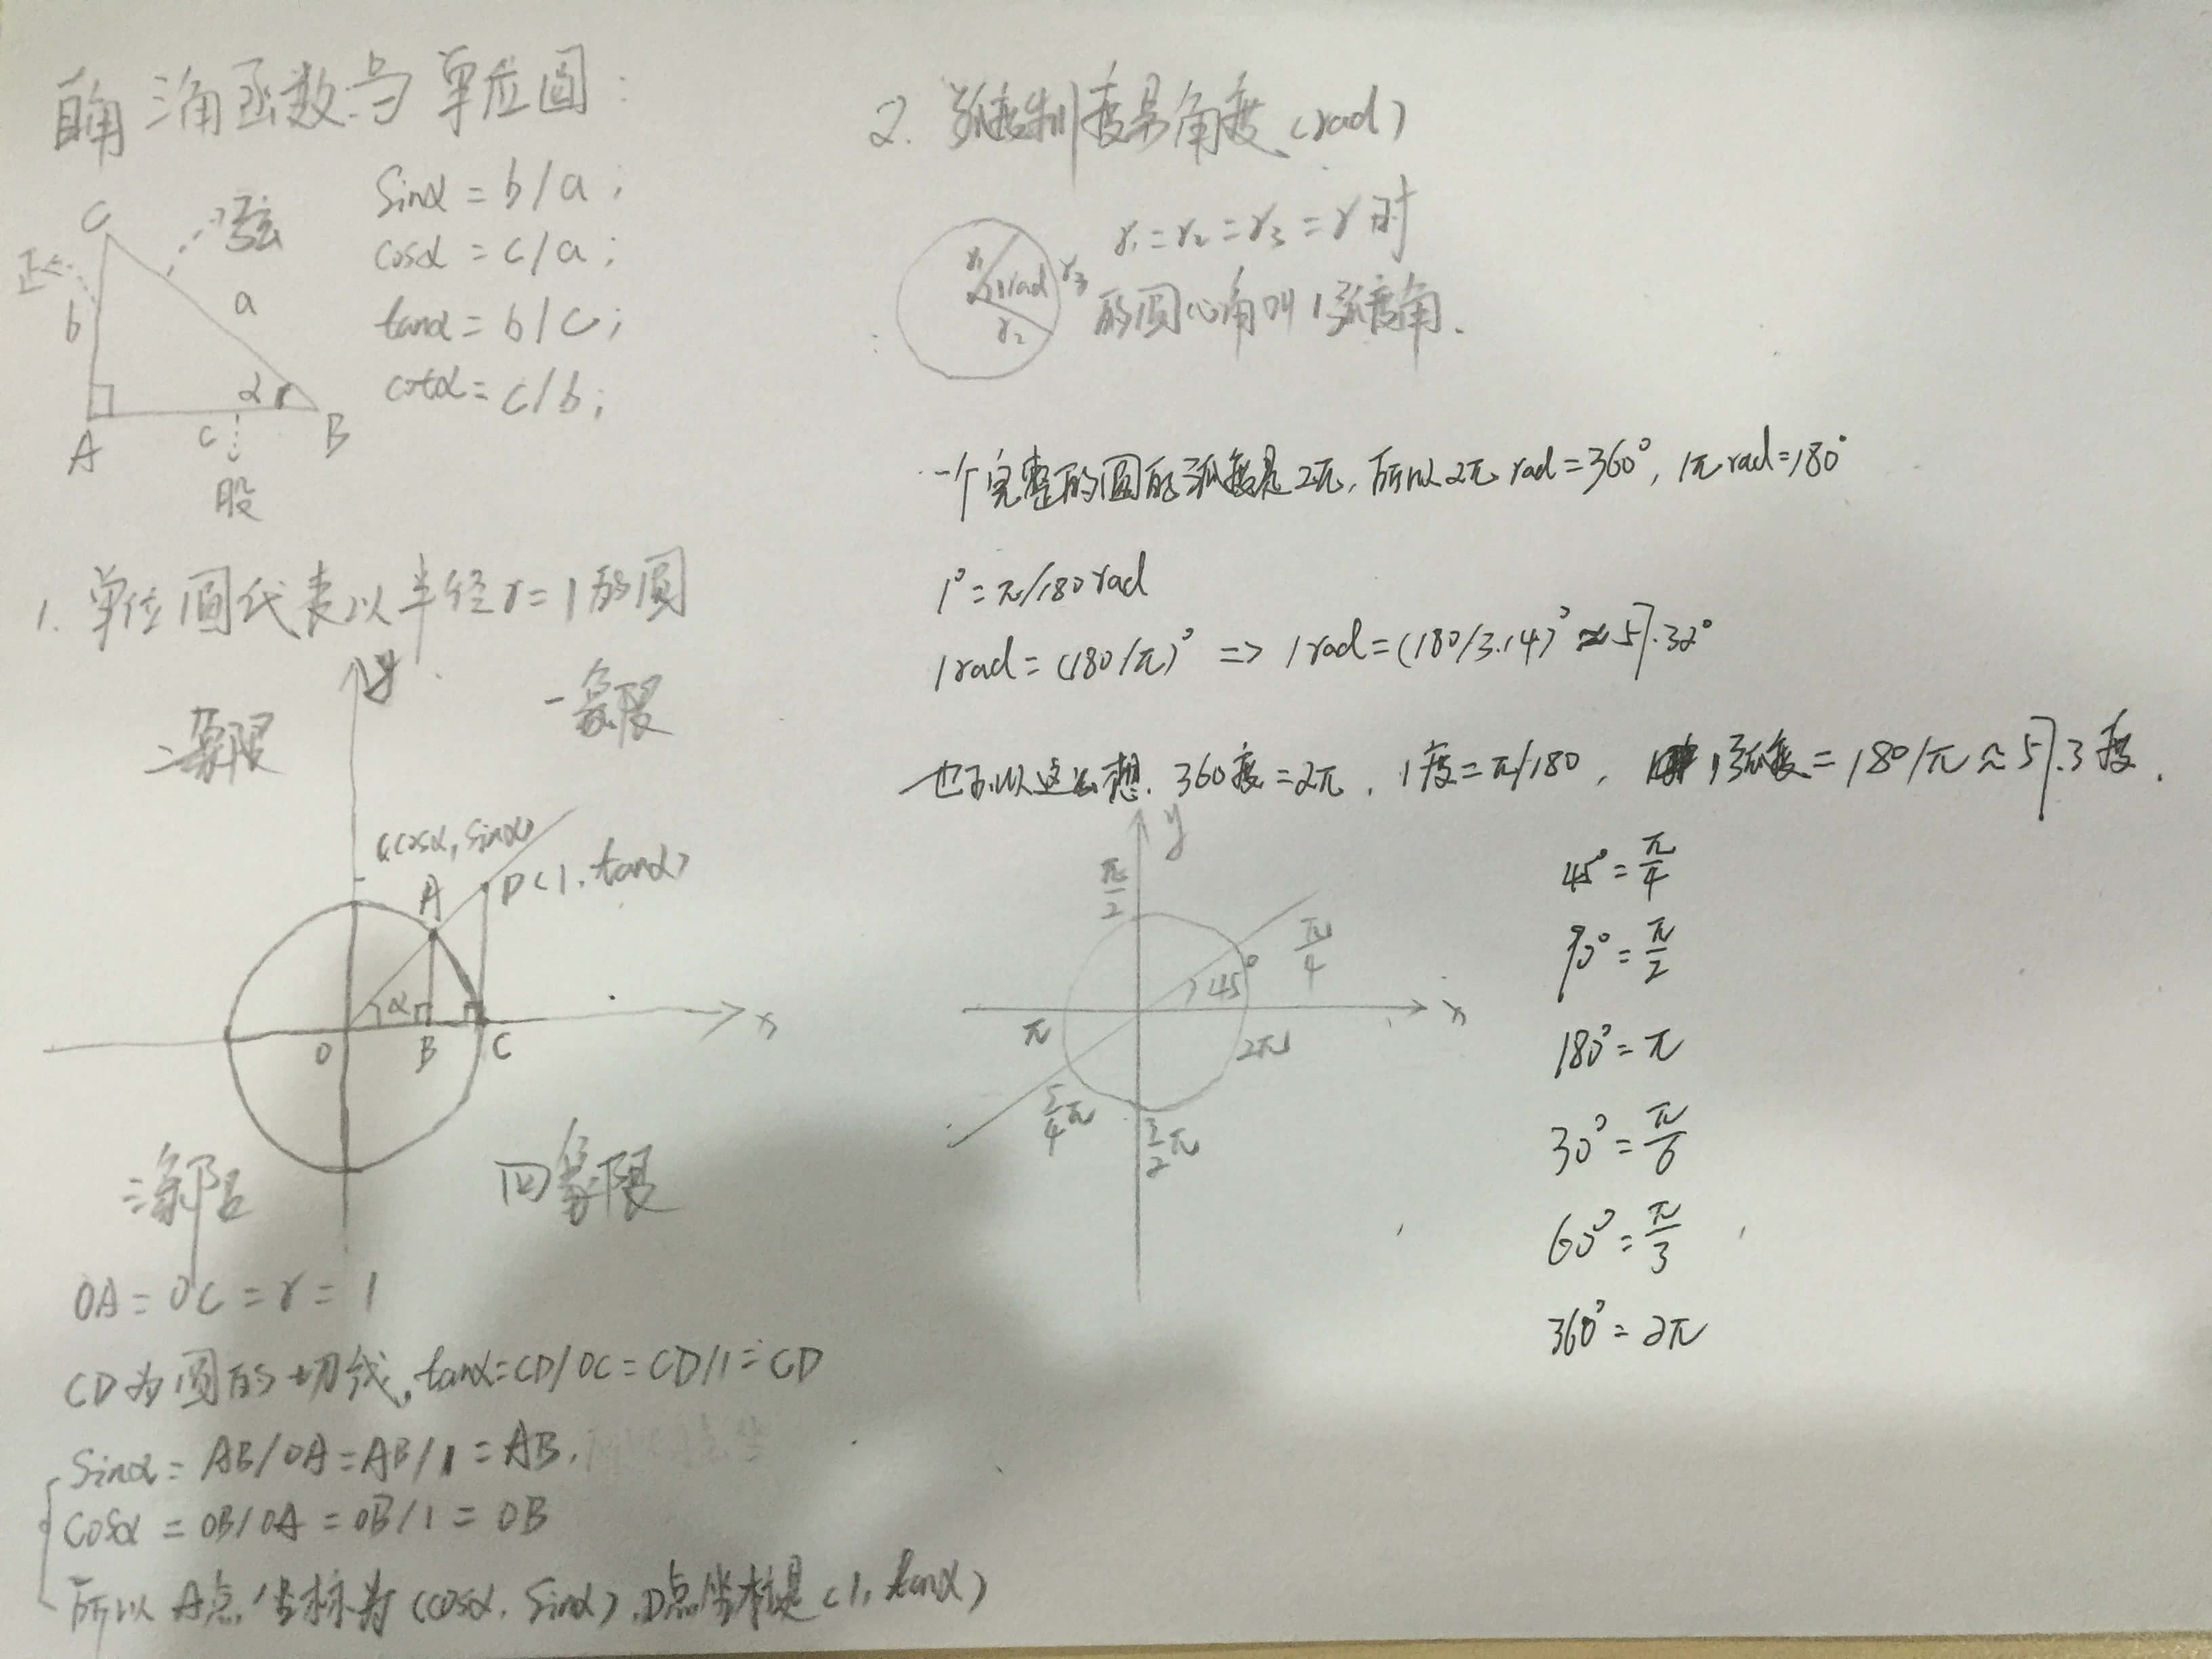 三角函数与单位圆：
sinα = b/a；
cosα = c/a；
tanα = b/c；
cotα = c/b；
C
弦
正
b
a
α
A
c
B
股
1. 单位圆代表以半径r=1的圆
y
二象限
一象限
(cosα, sinα)
A
D(1, tanα)
α
O
B
C
x
三象限
四象限
OA=OC=r=1
CD为圆的切线, tanα=CD/OC=CD/1=CD
sinα=AB/OA=AB/1=AB,
cosα=OB/OA=OB/1=OB
所以A点坐标为(cosα, sinα), D点坐标是(1, tanα)
2. 弧度制度是角度(rad)
r₁
1rad
r₃
r₂
r₁=r₂=r₃=r时
的圆心角叫1弧度角.
一个完整的圆的弧度是2π, 所以2π rad=360°, 1π rad=180°
1°=π/180 rad
1rad=(180/π)° => 1rad=(180/3.14)°≈57.32°
也可以这么想, 360度=2π, 1度=π/180, 1弧度=180/π≈57.3度.
y
π/2
π/4
45°
x
π
2π
5/4π
3/2π
45°=π/4
90°=π/2
180°=π
30°=π/6
60°=π/3
360°=2π